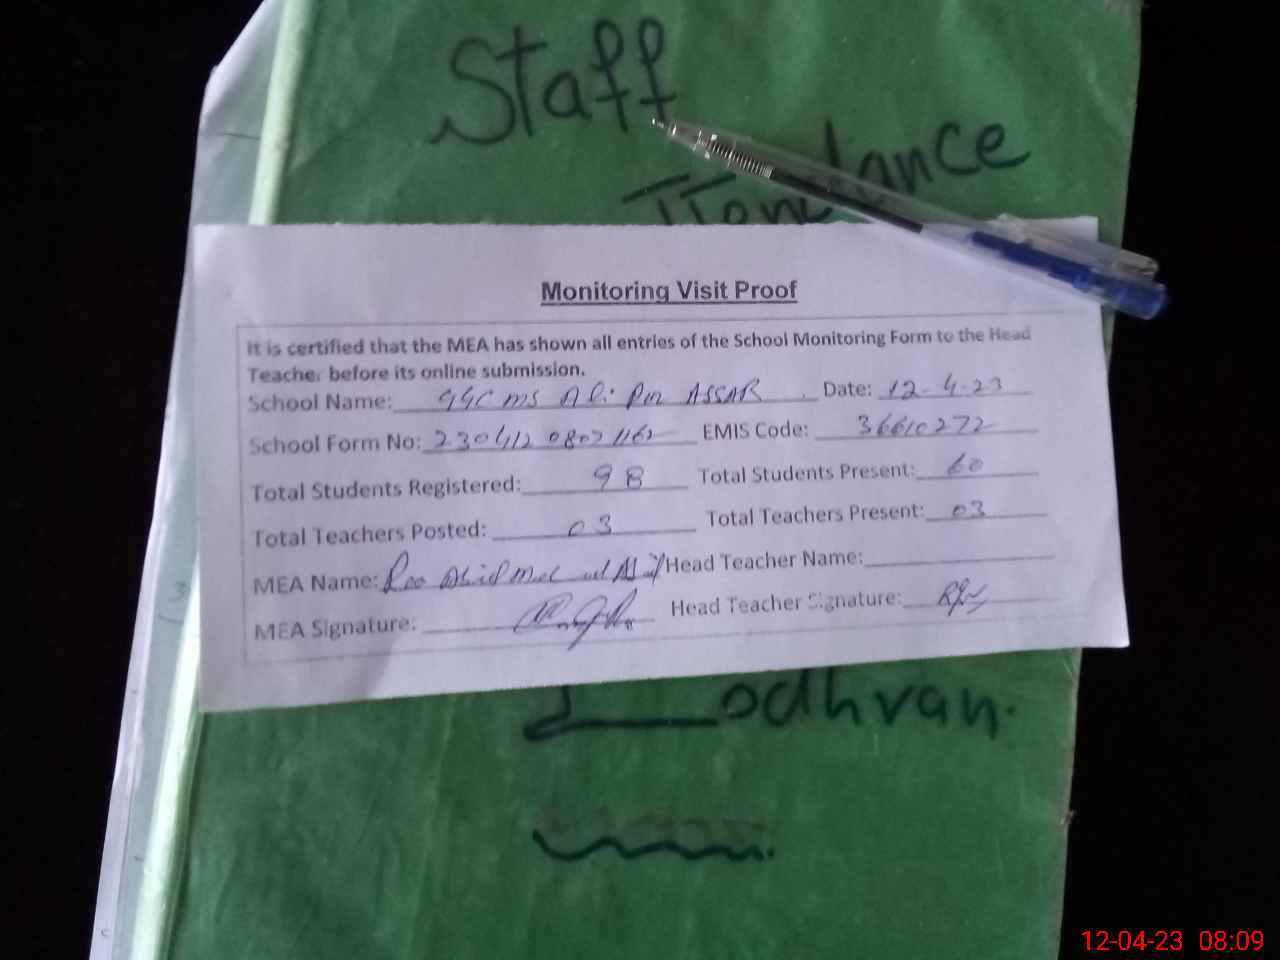 Staff
Attendance
Monitoring Visit Proof
It is certified that the MEA has shown all entries of the School Monitoring Form to the Head
Teacher before its online submission.
School Name: GGCMS Ali Pur ASSAR Date: 12-4-23
School Form No: EMIS Code: 36610272
Total Students Registered: 98 Total Students Present: 60
Total Teachers Posted: 03 Total Teachers Present: 03
MEA Name: Rao Head Teacher Name:
MEA Signature: Head Teacher Signature:
Lodhran.
12-04-23 08:09